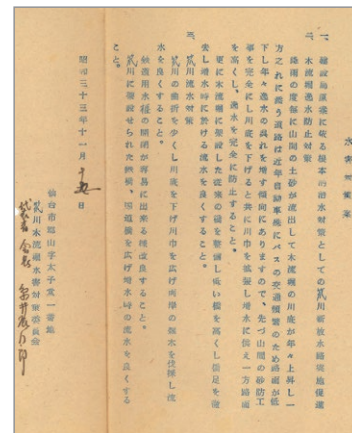 水害対策案
一、霞目飛行場に依る根本的治水対策としての荒川新放水路実施促進
二、木流堀溢水防止対策
降雨の度毎に山間の土砂が流出して木流堀の川底が年々上昇し一
方之れに添う道路は近年自動車殊にバスの交通頻繁のため路面が低
下し年々溢水の虞れを増す傾向にありますので、先づ山間の砂防工
事を完全にし川底を下げると共に川巾を拡張し増水に備え一方路面
を高くし、溢水を完全に防止すること。
更に木流堀に架設した従来の橋を整備し低い橋を高くし橋足を徹
去し増水時に於ける流水を良くすること。
三、荒川木流対策
荒川の曲折を少くし川底を下げ川巾を広げ両岸の樹木を伐採し流
水を良くすること。
放流用水堰の開閉が容易に出来る様改良すること。
荒川に架設せられた鉄橋、国道橋を広げ増水時の流水を良くする
こと。
昭和三十三年十一月十九日
仙台市郡山字太子堂一番地
荒川木流堀水害対策委員会
代表 会長